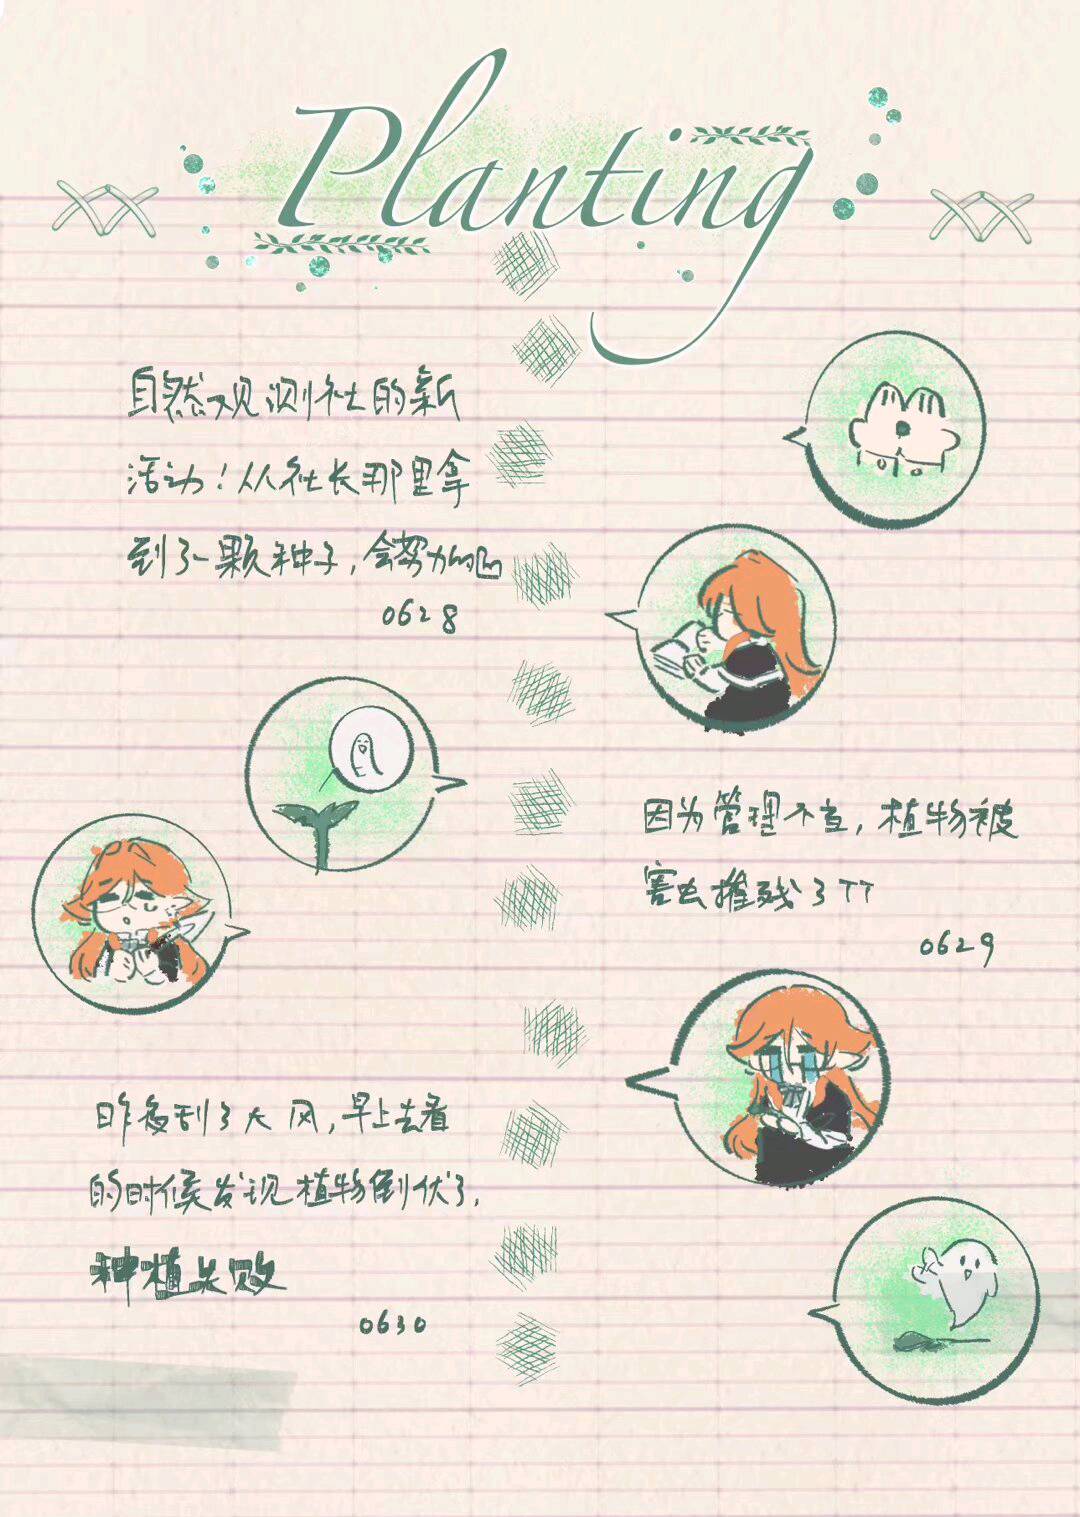 Planting
自然观测社的新
活动！从社长那里拿
到了一颗种子，会努力的凸
0628
因为管理不当，植物被
害虫摧残了TT
0629
昨夜刮了大风，早上去看
的时候发现植物倒伏了，
种植失败
0630